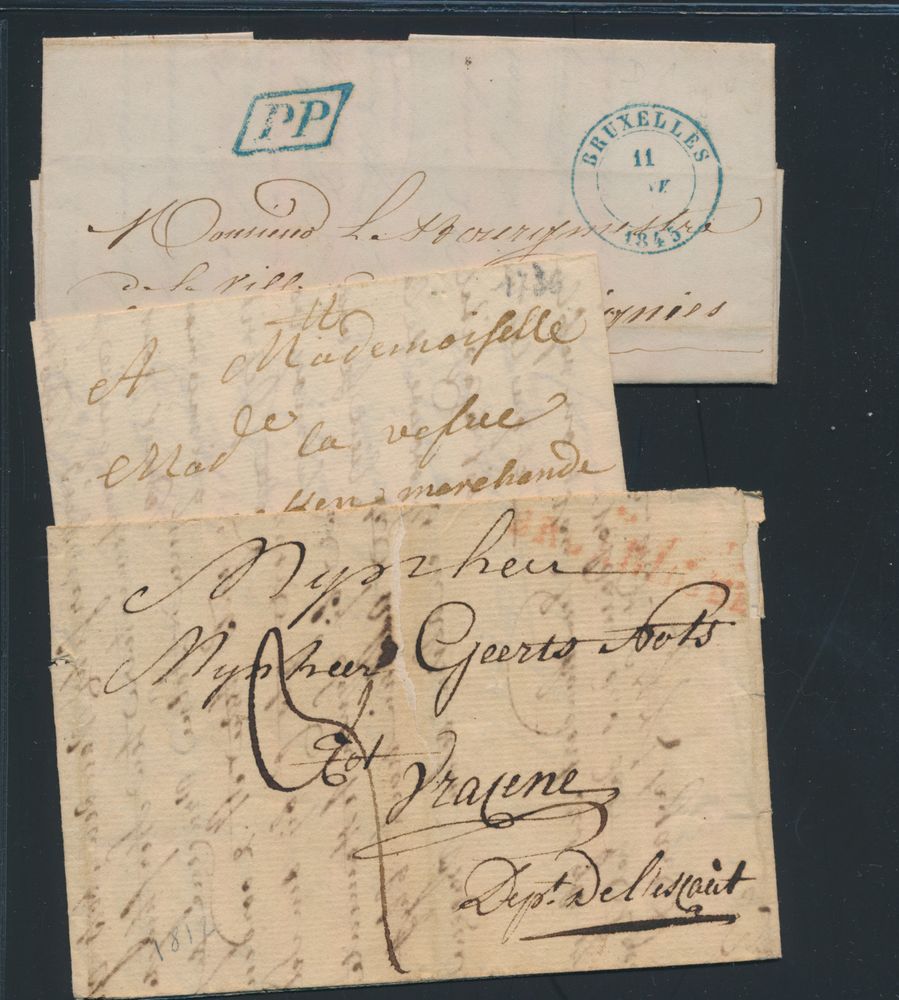 PP
BRUXELLES
11
1845
Monsieur Le Bourgmestre
de la Ville
ignies
1736
A Mademoiselle
Made la vefue
marchande
Mynheer
Mynheer Geerts Nots
Tot
Vracene
Dept. De l'escaut